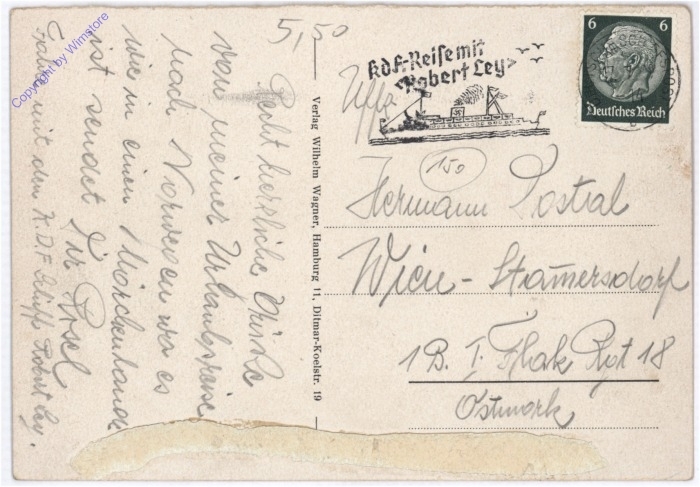 Copyright by Wimstore
5,50
Recht herzliche Grüße
von meiner Urlaubsreise
nach Norwegen war es
wie in einen Märchenland
ist sendet Dir Rosel
Fahre mit den K.D.F Schiff Robert Ley.
Verlag Wilhelm Wagner, Hamburg 11, Ditmar-Koelstr. 19
KdF-Reise mit
"Robert Ley"
6 6
Deutsches Reich
Uffz
150
Hermann Postral
Wien-Stamersdorf
1 B. I. Flak Rgt 18
Ostmark